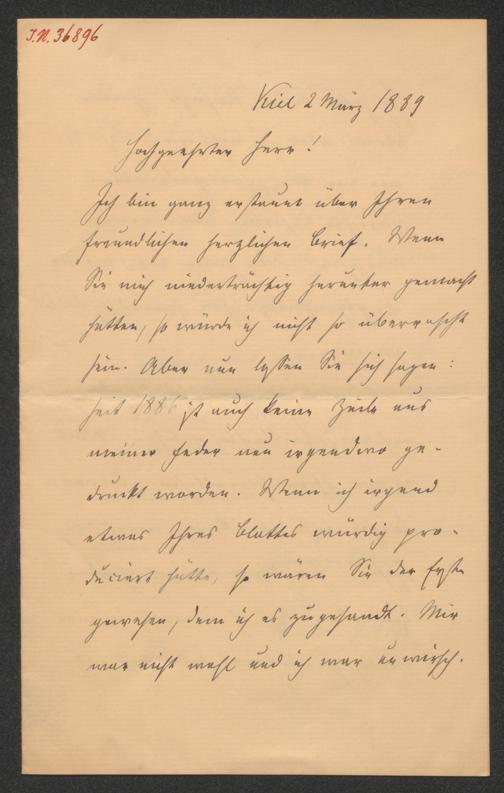 I.N. 36896
Kiel 2 März 1889
Hochgeehrter Herr!
Ich bin ganz erstaunt über Ihren
freundlichen herzlichen Brief. Wenn
Sie mich niederträchtig herunter gemacht
hätten, so würde ich nicht so überrascht
sein. Aber nun lassen Sie sich sagen:
seit 1886 ist auch keine Zeile aus
meiner Feder neu irgendwo ge-
druckt worden. Wenn ich irgend
etwas Ihres Blattes würdig pro-
duciert hätte, so wären Sie der Erste
gewesen, dem ich es zugesandt. Mir
war nicht wohl und ich war unwirsch.